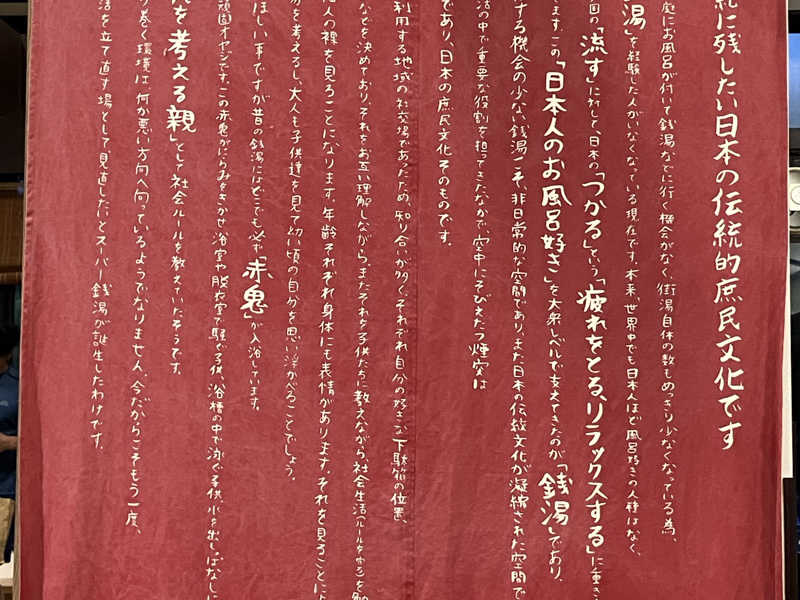 紀に残したい日本の伝統的庶民文化です
庭にお風呂が付いて銭湯などに行く機会がなく、街湯自体の数もめっきり少なくなっている為、
湯」を経験した人がいなくなっている現在です。本来、世界中でも日本人ほど風呂好きの人種はなく、
国の「流す」に対して、日本の「つかる」という「疲れをとる、リラックスする」に重き
ます。この「日本人のお風呂好き」を大衆レベルで支えてきたのが「銭湯」であり、
する機会の少ない銭湯こそ、非日常的な空間であり、また日本の伝統文化が凝縮された空間で
活の中で重要な役割を担ってきたなかで、空中にそびえたつ煙突は
であり、日本の庶民文化そのものです。
利用する地域の社交場であったため、知り合いが多く、それぞれ自分の好きな下駄箱の位置、
などを決めており、それをお互い理解しながら、またそれを子供たちに教えながら、社会生活(ルールを守る)を勉
人の裸を見ることになります。年齢それぞれ身体にも表情があります。それを見ることによ
分を考えるし、大人も子供達を見て幼い頃の自分を思い浮かべることでしょう。
ほしい手ですが昔の銭湯にはどこでも必ず「赤鬼」が入浴しています。
頑固オヤジです。この赤鬼がにらみをきかせ浴室や脱衣室で騒ぐ子供、浴槽の中で泳ぐ子供、水を出しっぱなしに
を考える親」として社会ルールを教えていたそうです。
巻く環境は、何か悪い方向へ向っているようでなりません。今だからこそもう一度、
活を立て直す場として見直したいとスーパー銭湯が誕生したわけです。